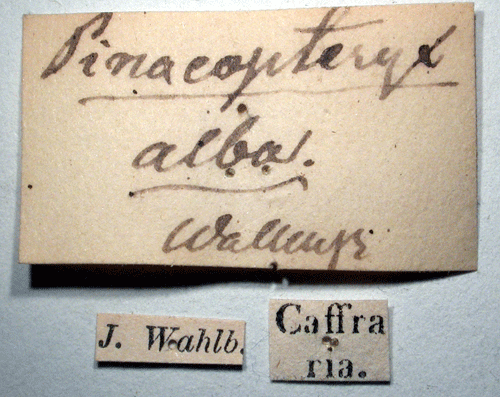 Pinacopteryx
alba.
Wallengr
J. Wahlb.
Caffra
ria.